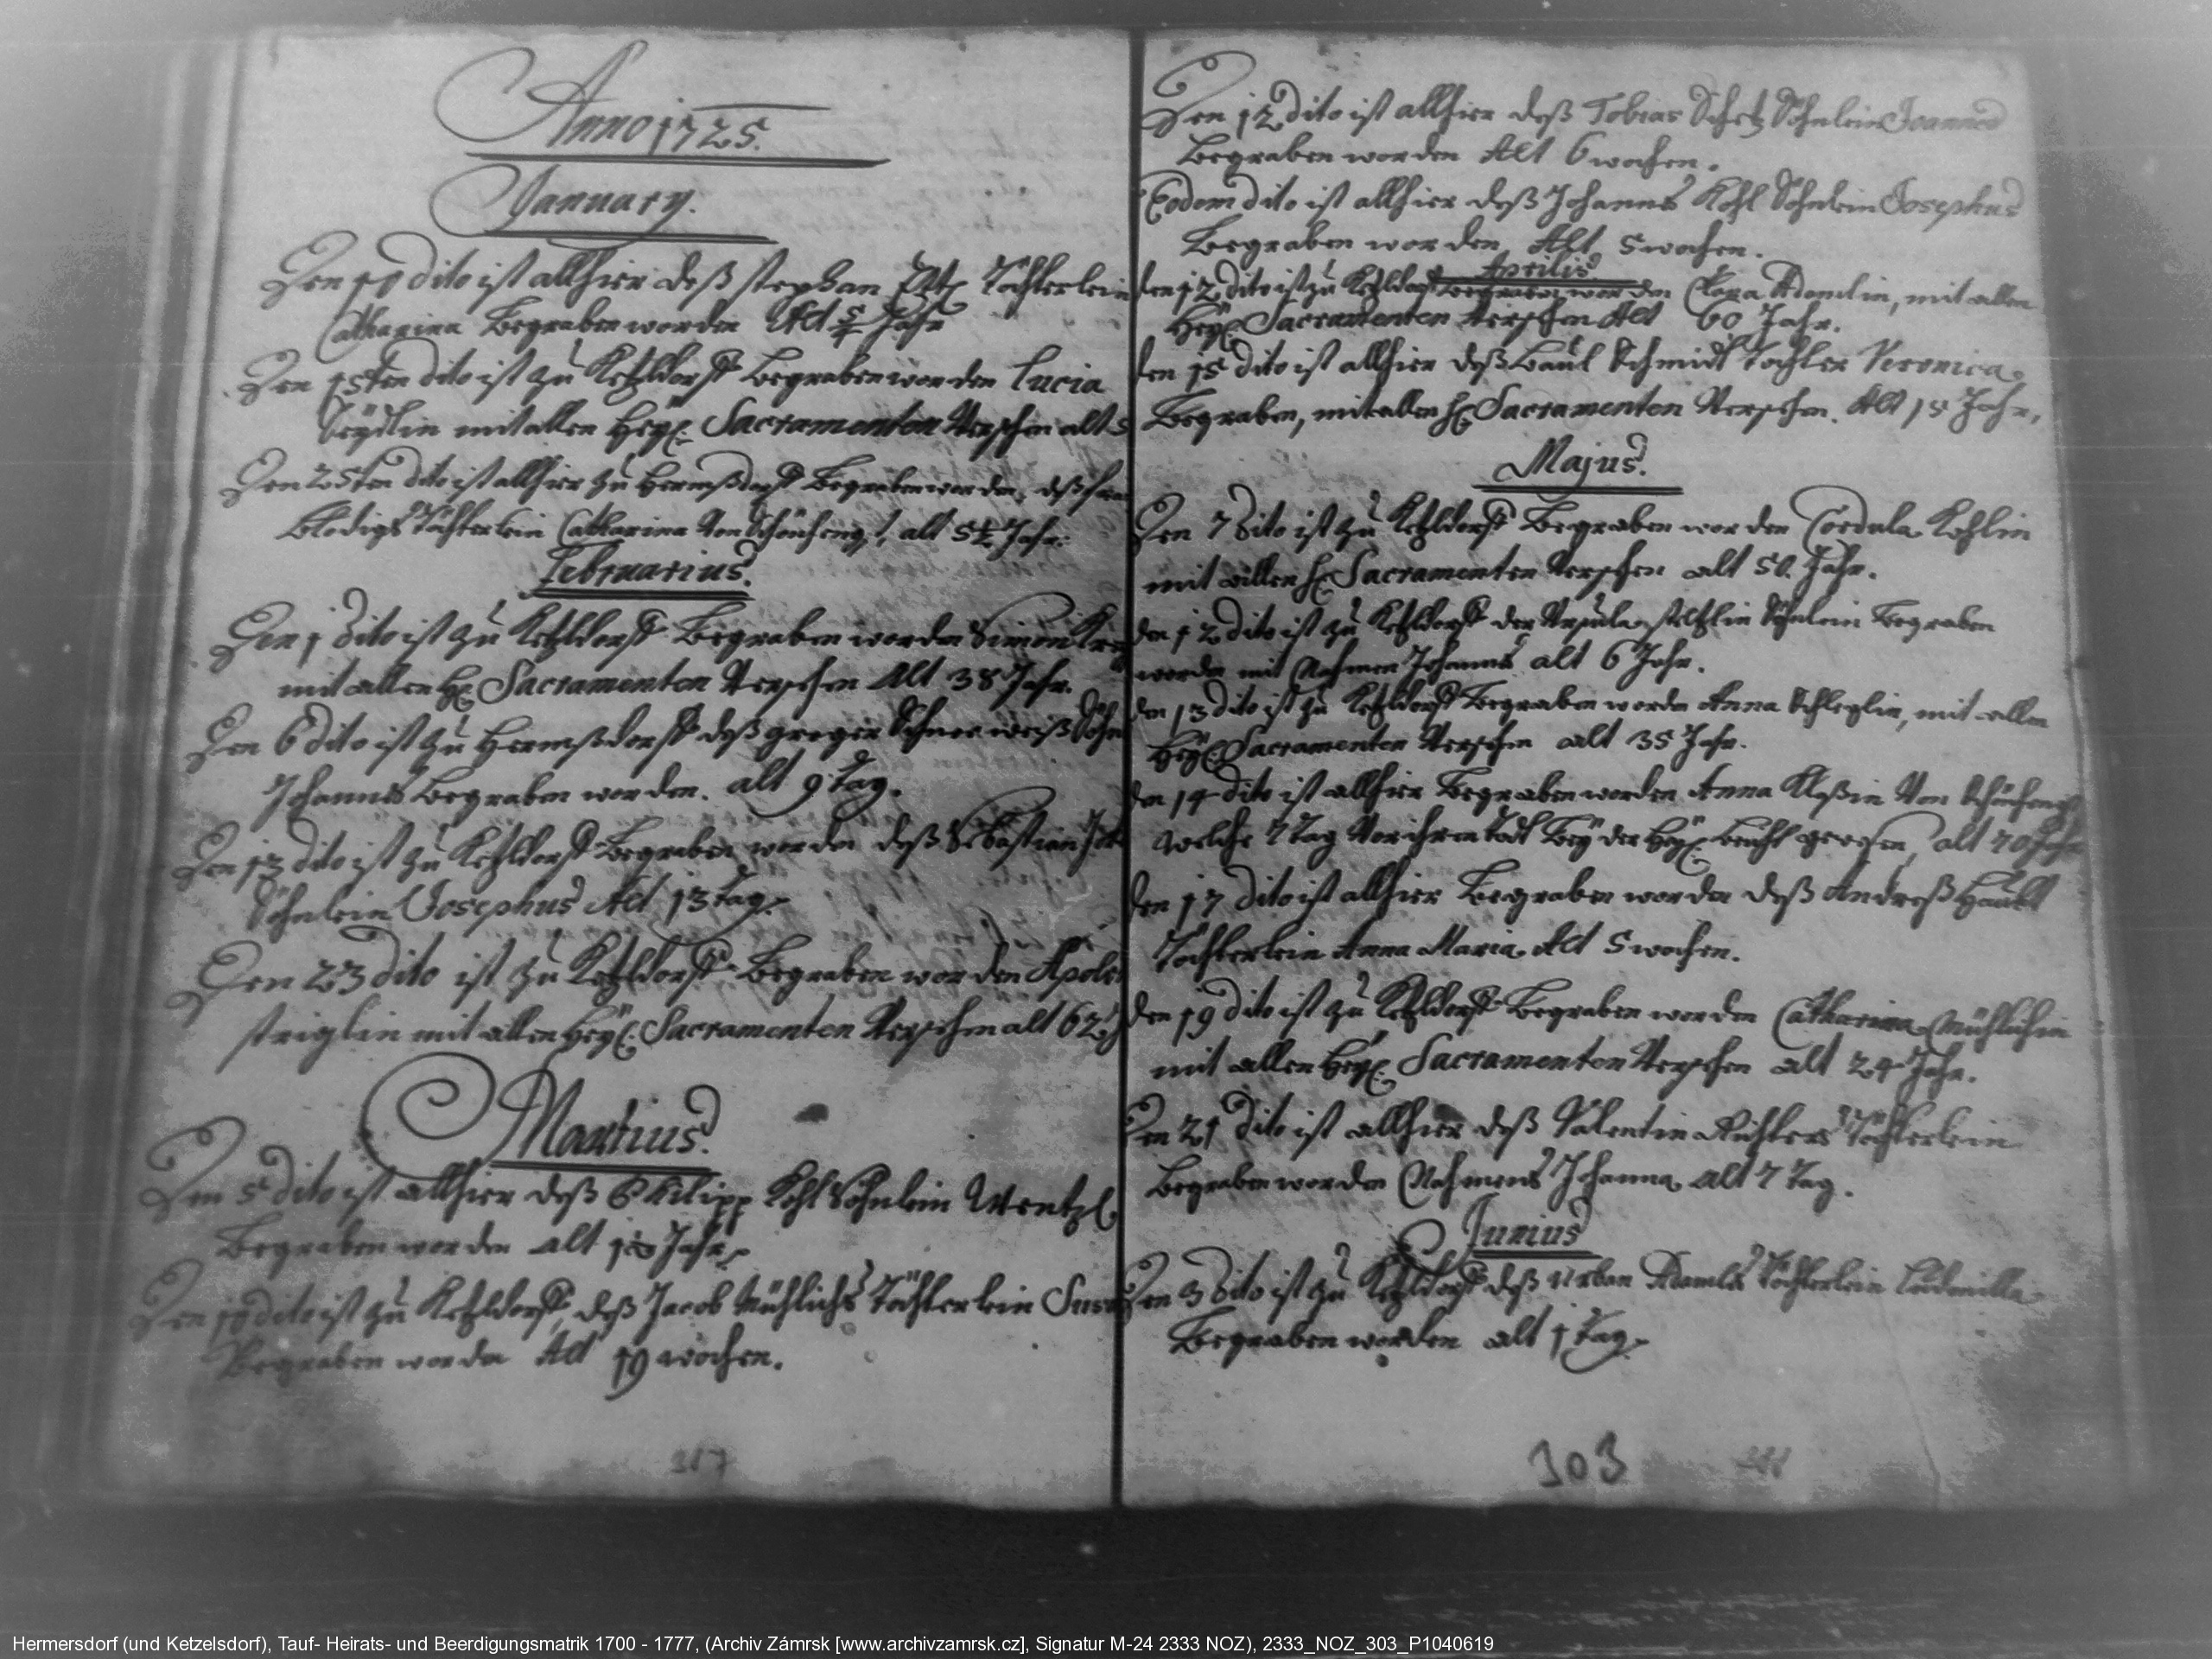 Anno 1725.
January.
Den 10 dito ist allhier deß Stephan Töchterlein
Catharina Begraben worden Alt Jahr
Den 15ten dito ist zu Ketzldorff Begraben worden Lucia
Seydlin mit allen Heyl: Sacramenten Versehen alt
Den 25ten dito ist allhier zu Hermßdorff Begraben worden, deß
Blodigs Töchterlein Catharina Von alt 5½ Jahr:
Februarius.
Den 1 dito ist zu Ketzldorff Begraben worden Simon
mit allen Hl: Sacramenten Versehen Alt 38 Jahr.
Den 6 dito ist zu Hermßdorff deß greger Schneeweiß Söhn
Johannes Begraben worden. alt 9 Tag.
Den 13 dito ist zu Ketzldorff Begraben worden deß Sebastian
Söhnlein Josephus Alt 13 Tag.
Den 23 dito ist zu Ketzldorff Begraben worden Apolo
Striglin mit allen Heyl: Sacramenten Versehen alt 62 J
Martius.
Den 5 dito ist allhier deß Philipp Kohl Söhnlein Wentzl
Begraben worden alt Jahr.
Den 10 dito ist zu Ketzldorff, deß Jacob Mühlichs Töchterlein Susa
Begraben worden Alt 19 wochen.
317
Den 12 dito ist allhier deß Tobias Söhnlein Joannes
Begraben worden Alt 6 wochen.
Eodem dito ist allhier deß Johannes Kohl Söhnlein Josephus
Begraben worden, Alt 5 wochen.
Aprilis
den 12 dito ist zu Ketzldorff Begraben worden Adamlin, mit allen
Heyl: Sacramenten Versehen Alt 60 Jahr.
den 15 dito ist allhier deß Paul Schmidt Tochter Veronica
Begraben, mit allen Hl: Sacramenten Versehen. Alt 15 Jahr.
Majus.
Den 7 dito ist zu Ketzldorff Begraben worden Cordula Kohlin
mit allen Hl: Sacramenten Versehen alt 50. Jahr.
den 12 dito ist zu Ketzldorff der Ursula Söhnlein Begraben
worden mit Nahmen Johannes alt 6 Jahr.
den 13 dito ist zu Ketzldorff Begraben worden Anna Schleglin, mit allen
Heyl: Sacramenten Versehen alt 35 Jahr.
den 14 dito ist allhier Begraben worden Anna Kloßin Von
welche 7 Tag Vor ihrem Todt Bey der Heyl: Beicht gewesen, alt 70 Jahr
den 17 dito ist allhier Begraben worden deß Andreß
Töchterlein Anna Maria Alt 5 wochen.
den 19 dito ist zu Ketzldorff Begraben worden Catharina Mühlichin
mit allen Heyl: Sacramenten Versehen alt 24 Jahr.
Den 21 dito ist allhier deß Valentin Richters Töchterlein
Begraben worden Nahmens Johanna alt 7 Tag.
Junius
Den 3 dito ist zu Ketzldorff deß Urban Adamls Töchterlein Ludmilla
Begraben worden alt 1 Tag.
303
Hermersdorf (und Ketzelsdorf), Tauf- Heirats- und Beerdigungsmatrik 1700 - 1777, (Archiv Zámrsk [www.archivzamrsk.cz], Signatur M-24 2333 NOZ), 2333_NOZ_303_P1040619